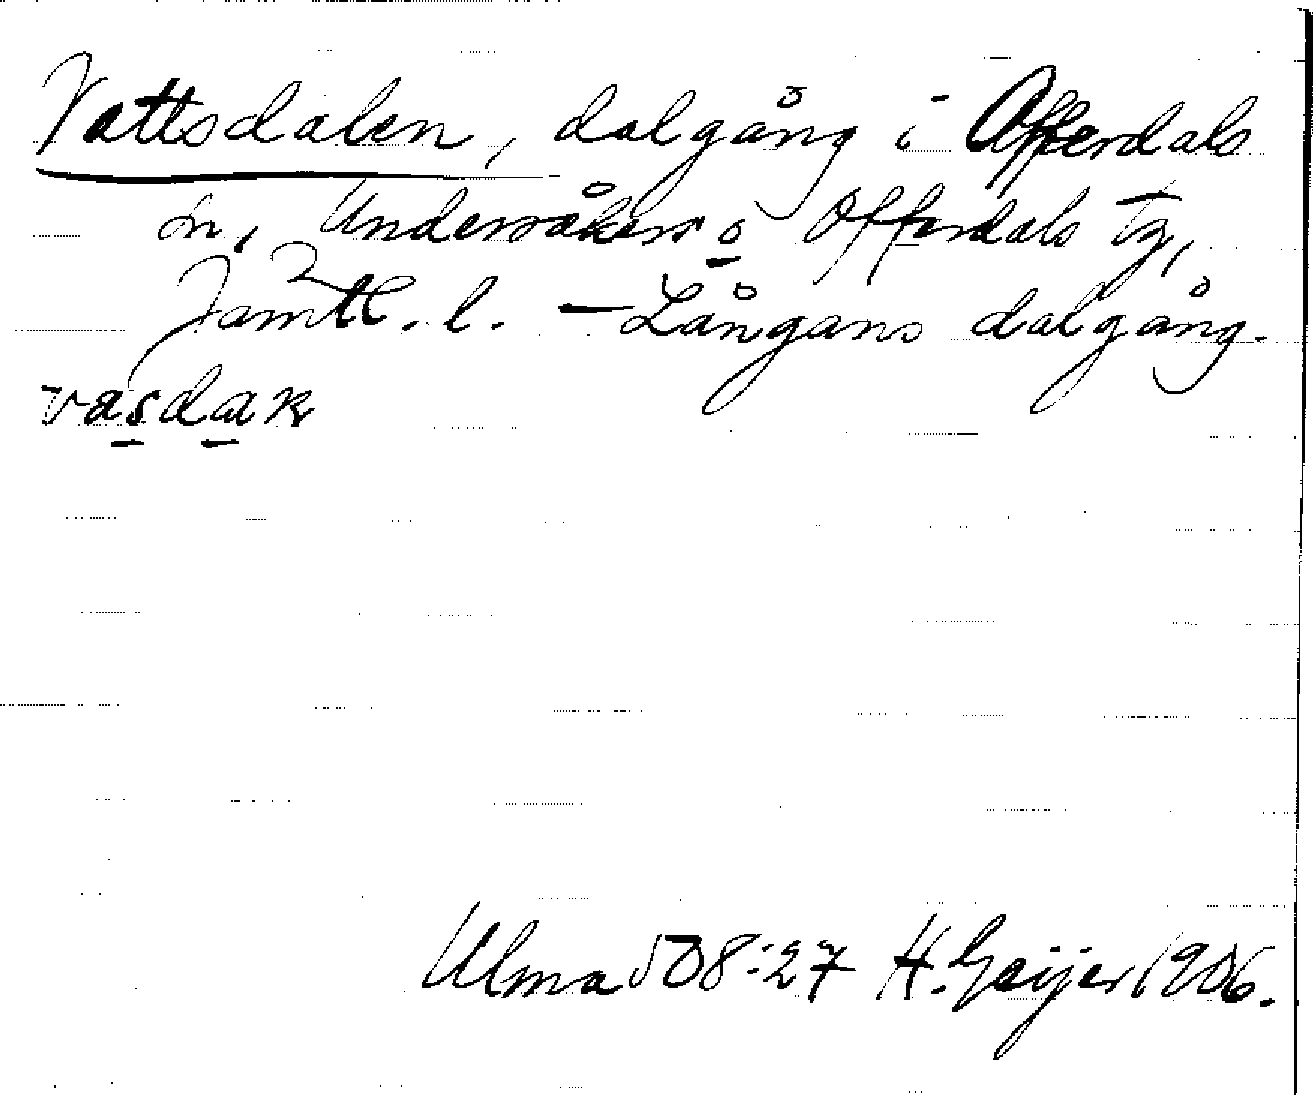 Vattsdalen, dalgång i Offerdals
sn, Undersåkers o Offerdals tg,
Jämtl. l. – Långans dalgång.
vasdaʀ
Ulma 508:27 H. Geijer 1906.